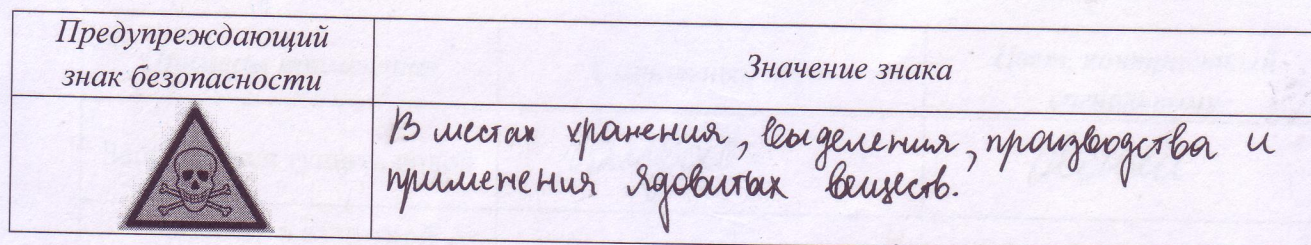 Предупреждающий
знак безопасности
Значение знака
В местах хранения, выделения, производства и
применения ядовитых веществ.